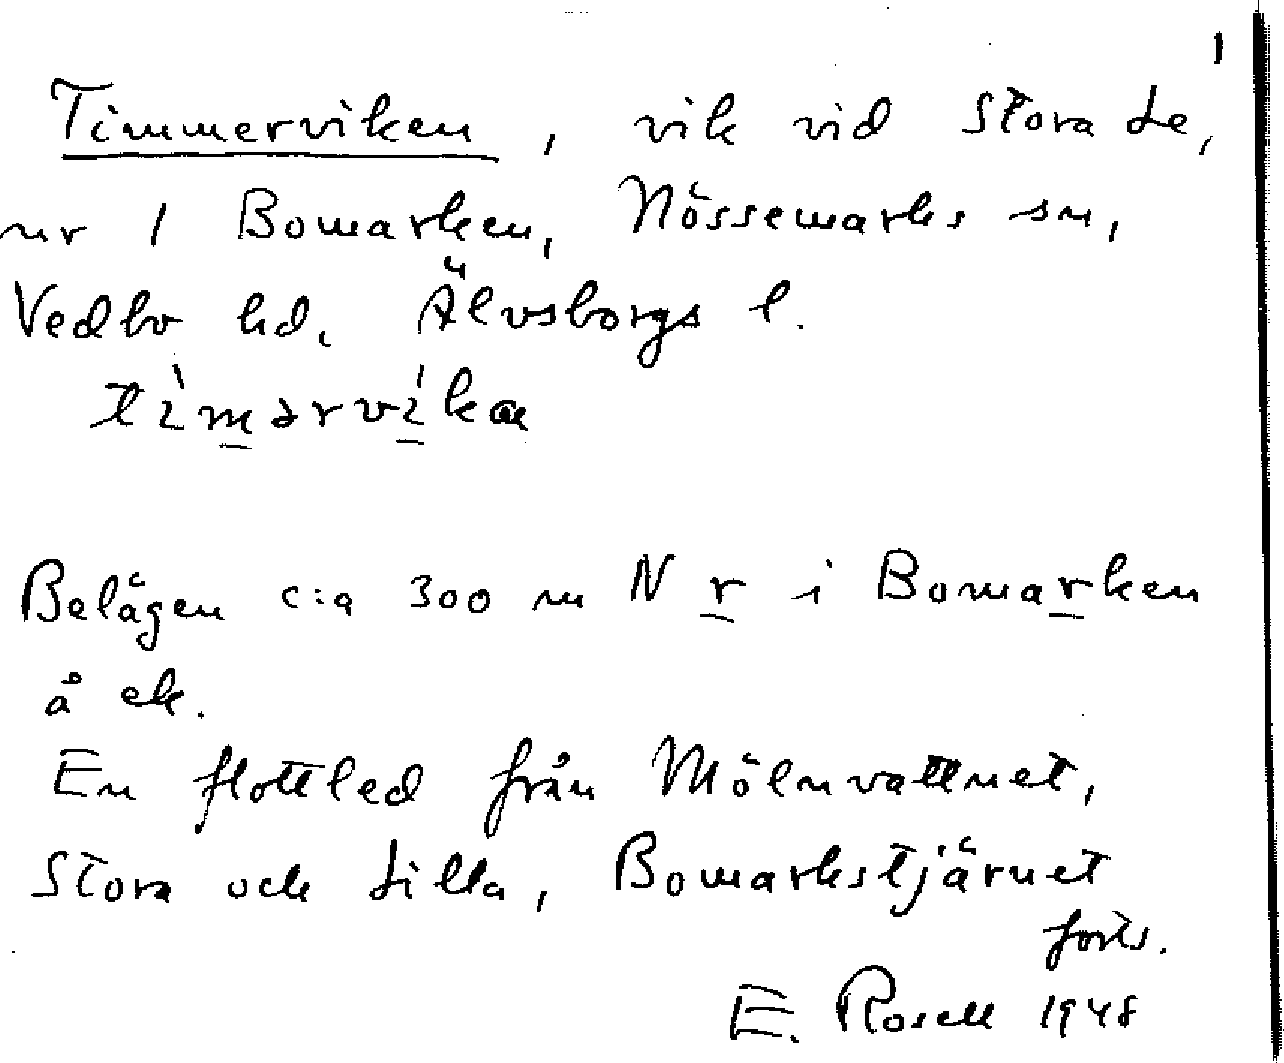 1
Timmerviken, vik vid Stora Le,
nr 1 Bomarken, Nössemarks sn,
Vedbo hd, Älvsborgs l.
tìmərvíka
Belägen c:a 300 m N r i Bomarken
å ek.
En flottled från Mölnvattnet,
Stora och Lilla, Bomarkstjärnet
forts.
E. Rosell 1948